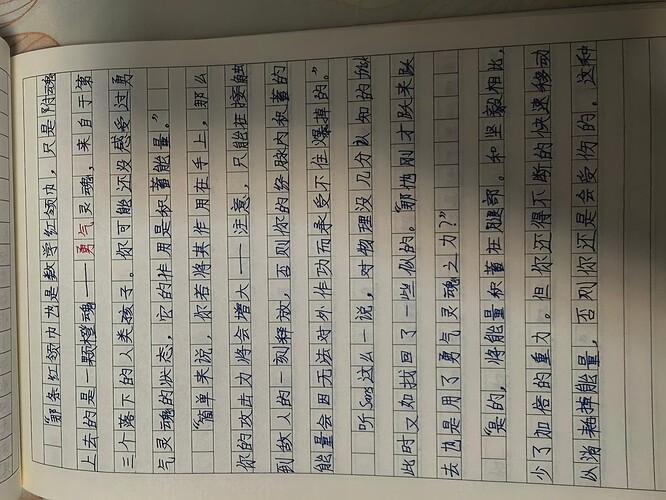 “那条红领巾也是数学红领巾，只是附魂
上去的是一颗橙魂——勇气灵魂，来自于第
三个落下的人类孩子。你可能还没感受过勇
气灵魂的状态，它的作用是积蓄能量。”
“简单来说，你若将其作用在手上，那么
你的攻击力将会增大——注意，只能在接触
到敌人的一刻释放，否则你的经脉内积蓄的
能量会因无法对外作功而承受不住爆掉的。”
听Sans这么一说，对物理没几分认知的
此时又如找回了一些似的。“那他刚才跃来跃
去也是用了勇气灵魂之力？”
“是的，将能量积蓄在腿部。和坚毅相比，
少了加倍的重力。但你还得不断的快速移动
从消耗掉能量，否则你还是会受伤的。这种